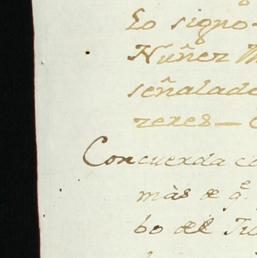 Lo signo
Nuñez
señalado
zeres —
Concuerda co
más de q.e
bo del Tu